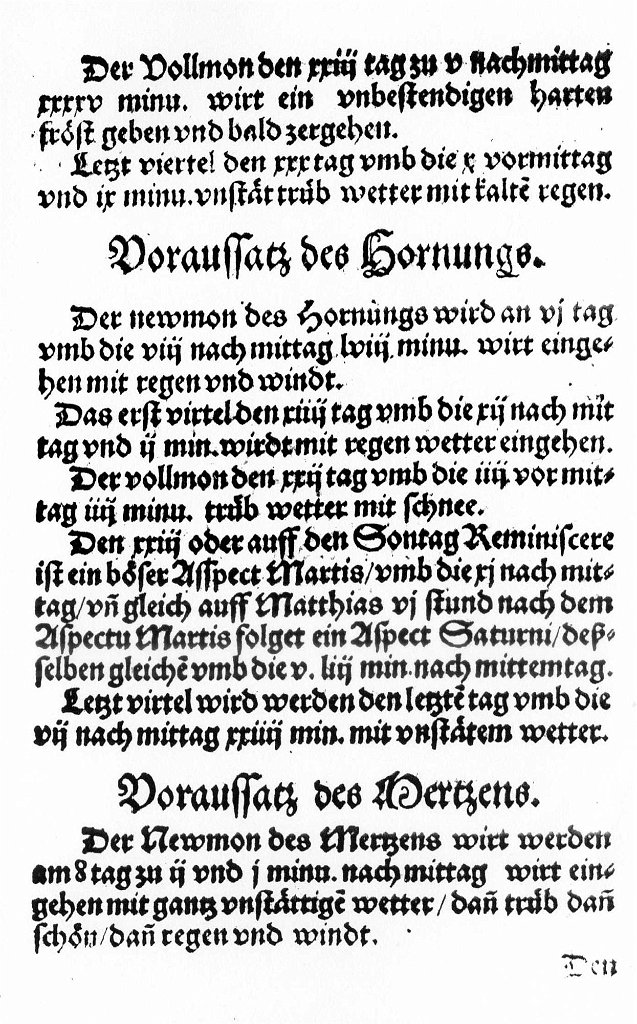 Der Vollmon den xxiij tag zu v nachmittag
xxxxv minu. wirt ein vnbestendigen harten
fröst geben vnd bald zergehen.
Letzt viertel den xxx tag vmb die x vormittag
vnd ix minu. vnstät trüb wetter mit kaltē regen.
Voraussatz des Hornungs.
Der newmon des Hornungs wird an vj tag
vmb die viij nach mittag lviij minu. wirt einge⸗
hen mit regen vnd windt.
Das erst virtel den xiiij tag vmb die xij nach mit
tag vnd ij min. wirdt mit regen wetter eingehen.
Der vollmon den xxij tag vmb die iiij vor mit⸗
tag iiij minu. trüb wetter mit schnee.
Den xxiij oder auff den Sontag Reminiscere
ist ein böser Asspect Martis/vmb die xj nach mit⸗
tag/vñ gleich auff Matthias vj stund nach dem
Aspectu Martis folget ein Aspect Saturni/deß⸗
selben gleichē vmb die v. liij min nach mittemtag.
Letzt virtel wird werden den letztē tag vmb die
vij nach mittag xxiiij min. mit vnstätem wetter.
Voraussatz des Mertzens.
Der Newmon des Mertzens wirt werden
am 8 tag zu ij vnd j minu. nach mittag wirt ein⸗
gehen mit gantz vnstättigē wetter/dañ trüb dañ
schön/dañ regen vnd windt.
Den